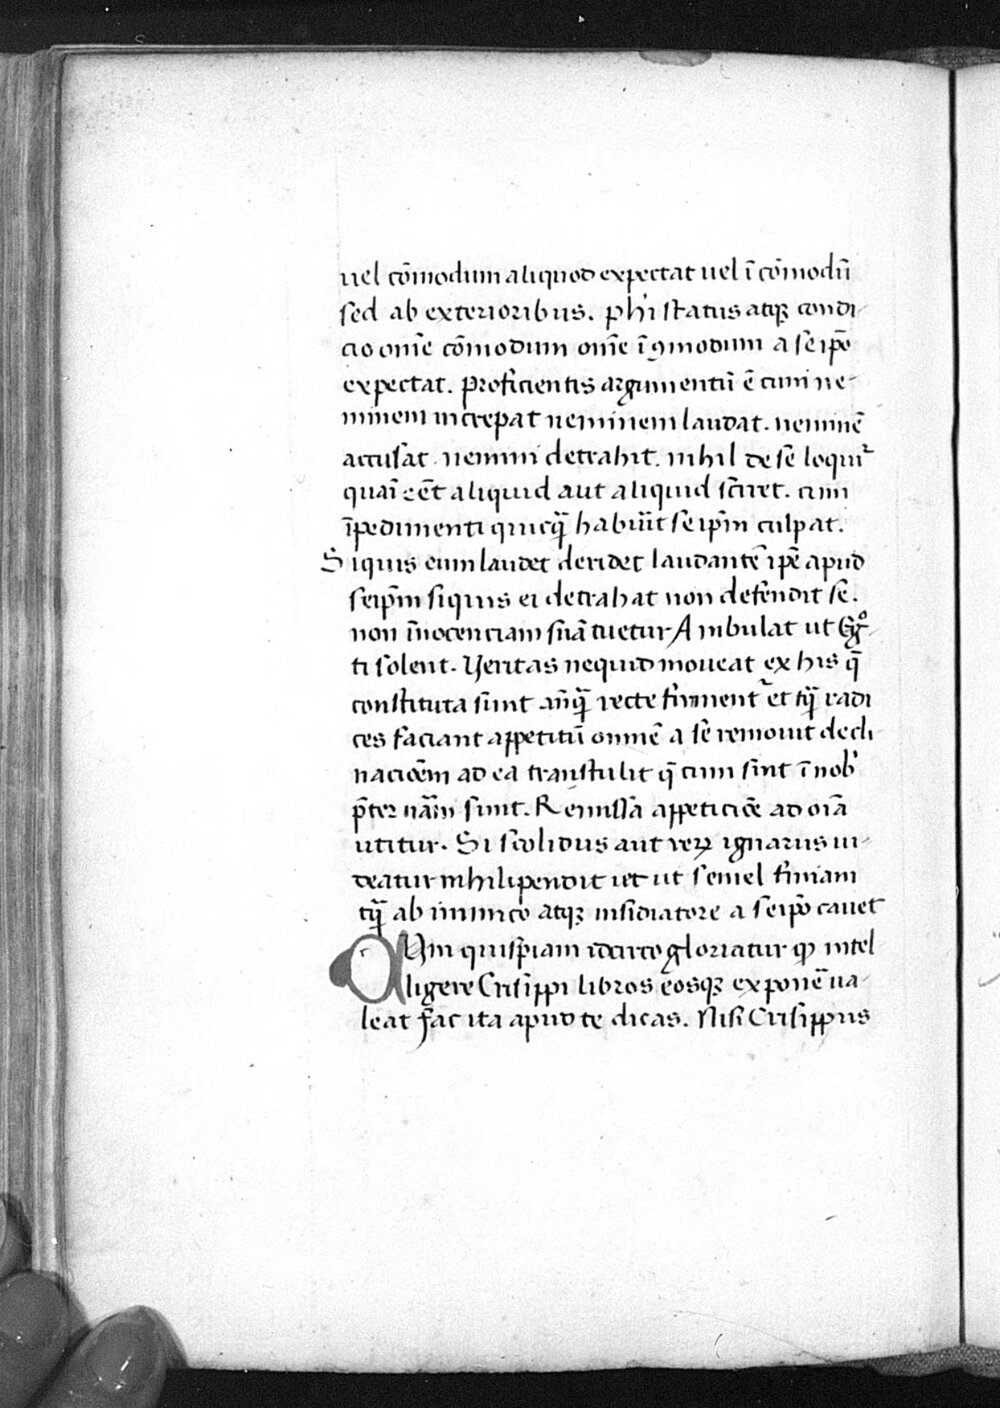 uel cōmodum aliquod expectat uel ī cōmodū
sed ab exterioribus. phi status atqꝫ condi-
cio om̄e cōmodum om̄e īꝯmodum a seip̄o
expectat. Proficientis argumentū ē cum ne-
minem increpat neminem laudat. neminē
accusat. nemini detrahit. nihil de se loquit᷑
aliquid aut aliquid sciret. cum
īpedimenti quicq̄ seip̄m culpat.
Siquis eum laudet deridet laudantē ip̄e apud
seip̄m siquis ei detrahat non defendit se.
non īnocenciam suā tuetur Ambulat ut Egº-
ti solent. Veritas nequid moueat ex his q̄
constituta sunt anq̄ recte firment᷑ et tq̄ radi
ces faciant appetitū omnē a se remouit decli-
nacioēm ad ea transtulit q̄ cum sint ī nob᷑
p̄ter nām sunt. Remissa appeticiōe ad oīa
utitur. Si stolidus aut rerꝝ ignarus ui-
deatur nihilipendit et ut semel finiam
tq̄ ab inimico atqꝫ insidiatore a seip̄o cauet
QVm quispiam idcirco gloriatur ꝙ intel
ligere Crisippi libros eosqꝫ exponē ua-
leat fac ita apud te dicas. Nisi Crisippus